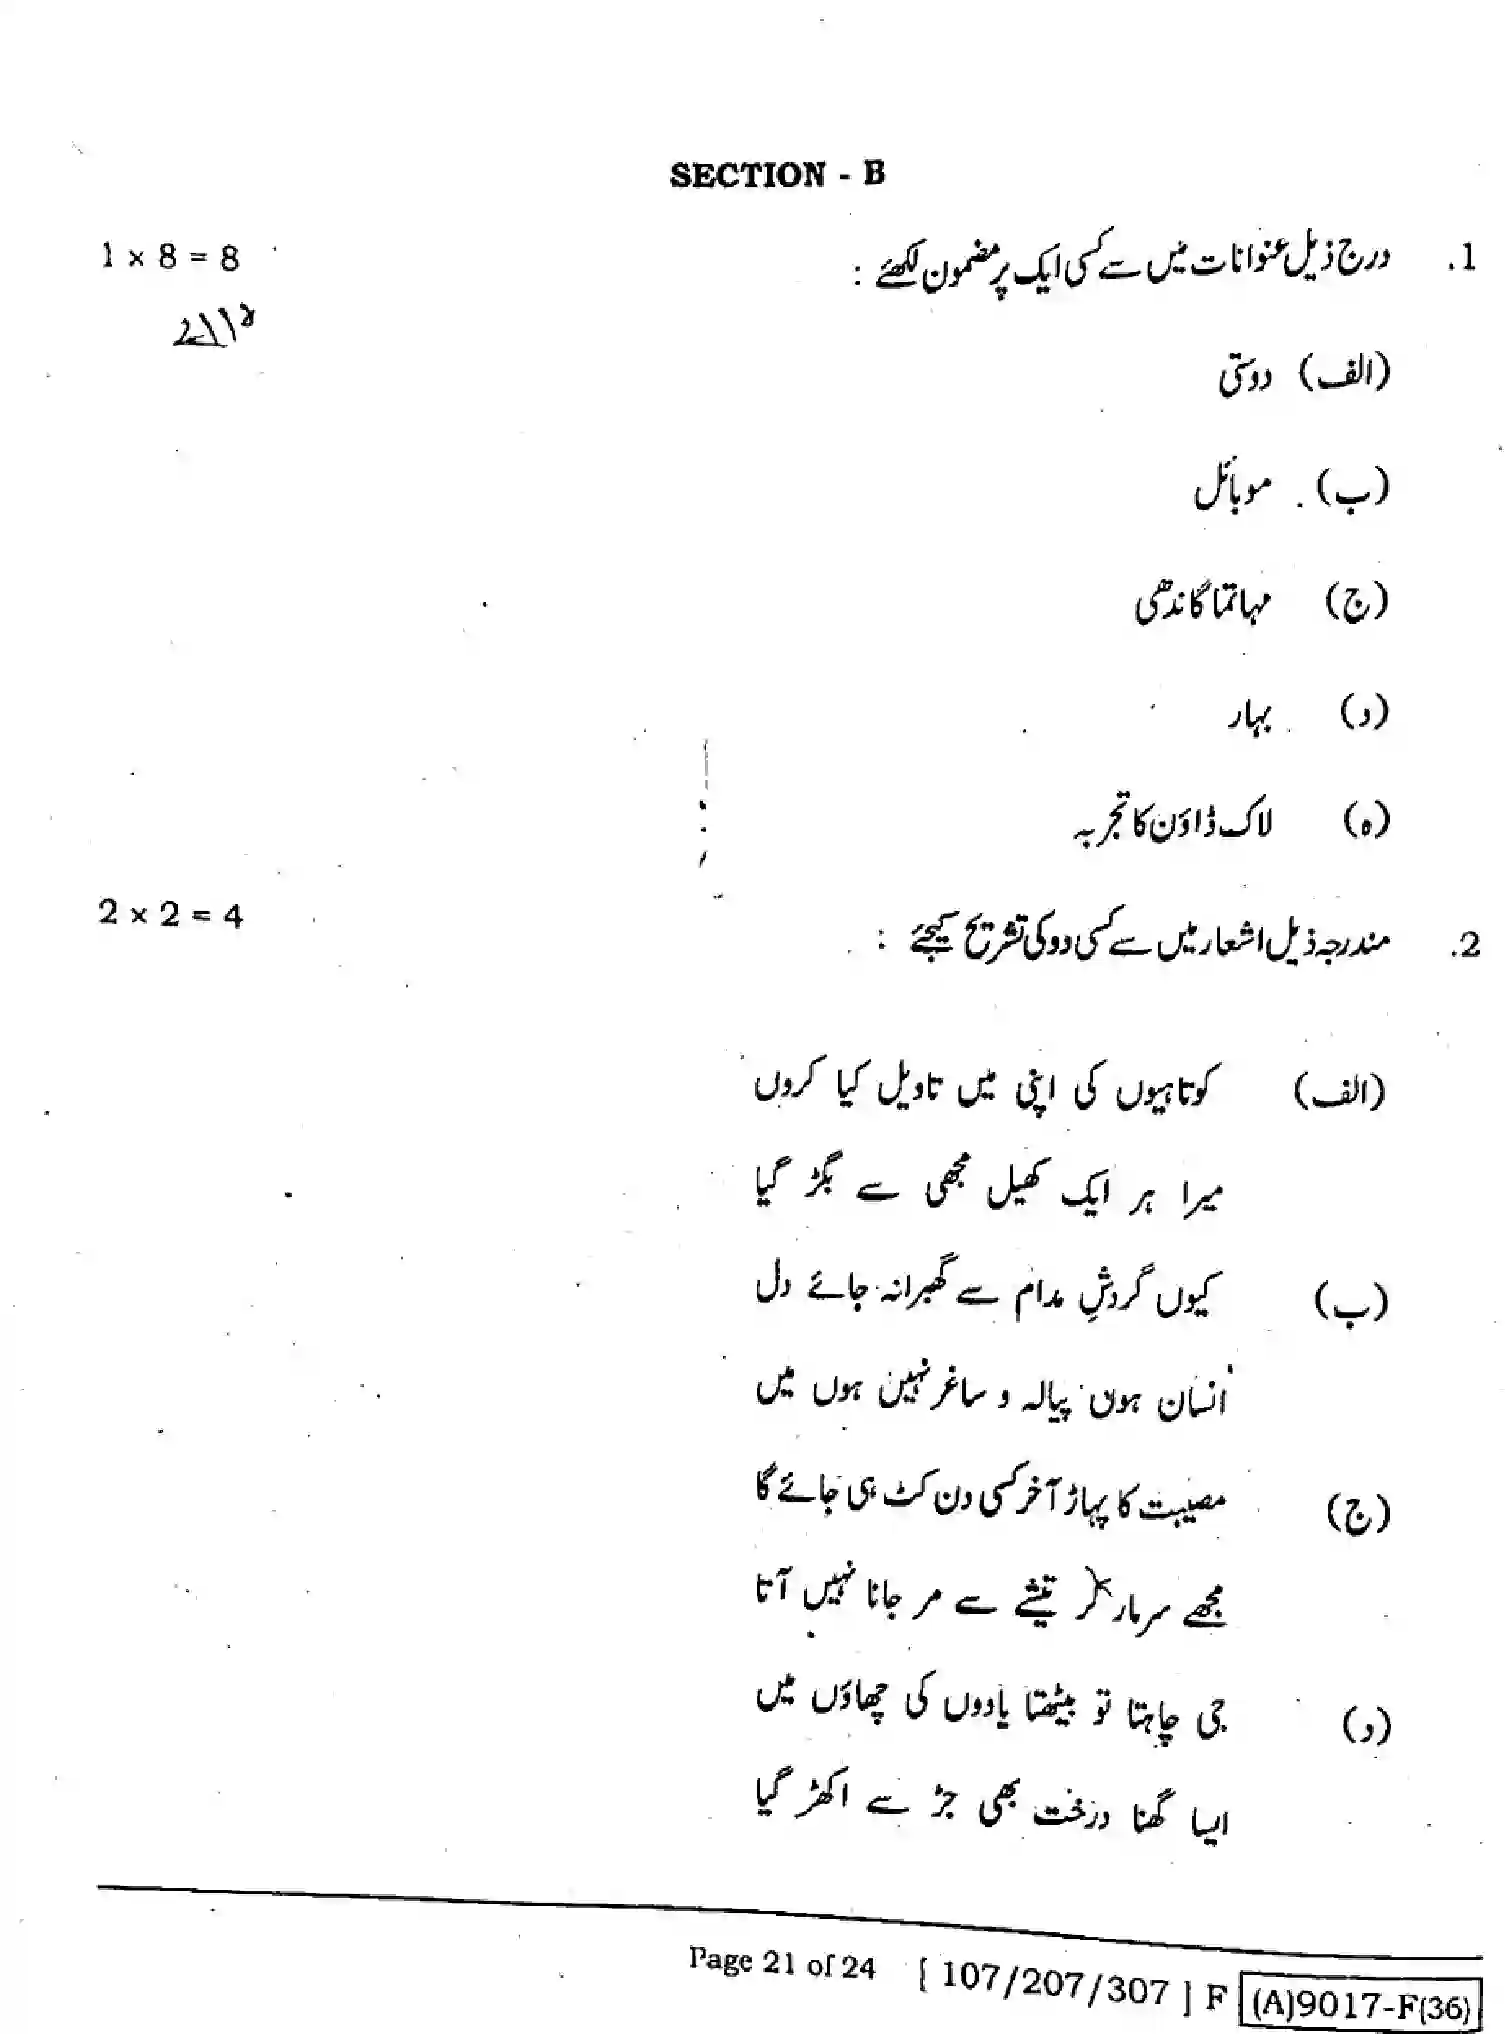 SECTION - B
1. درج ذیل عنوانات میں سے کسی ایک پر مضمون لکھئے : 1 × 8 = 8
(الف) دوستی
(ب) موبائل
(ج) مہاتما گاندھی
(د) بہار
(ہ) لاک ڈاؤن کا تجربہ
2. مندرجہ ذیل اشعار میں سے کسی دو کی تشریح کیجئے : 2 × 2 = 4
(الف) کوتاہیوں کی اپنی میں تاویل کیا کروں
میرا ہر ایک کھیل مجھی سے بگڑ گیا
(ب) کیوں گردشِ مدام سے گھبرا نہ جائے دل
انسان ہوں پیالہ و ساغر نہیں ہوں میں
(ج) مصیبت کا پہاڑ آخر کسی دن کٹ ہی جائے گا
مجھے سر مار کر تیشے سے مر جانا نہیں آتا
(د) جی چاہتا تو بیٹھتا یادوں کی چھاؤں میں
ایسا گھنا درخت بھی جڑ سے اکھڑ گیا
Page 21 of 24 [ 107/207/307 ] F (A)9017-F(36)